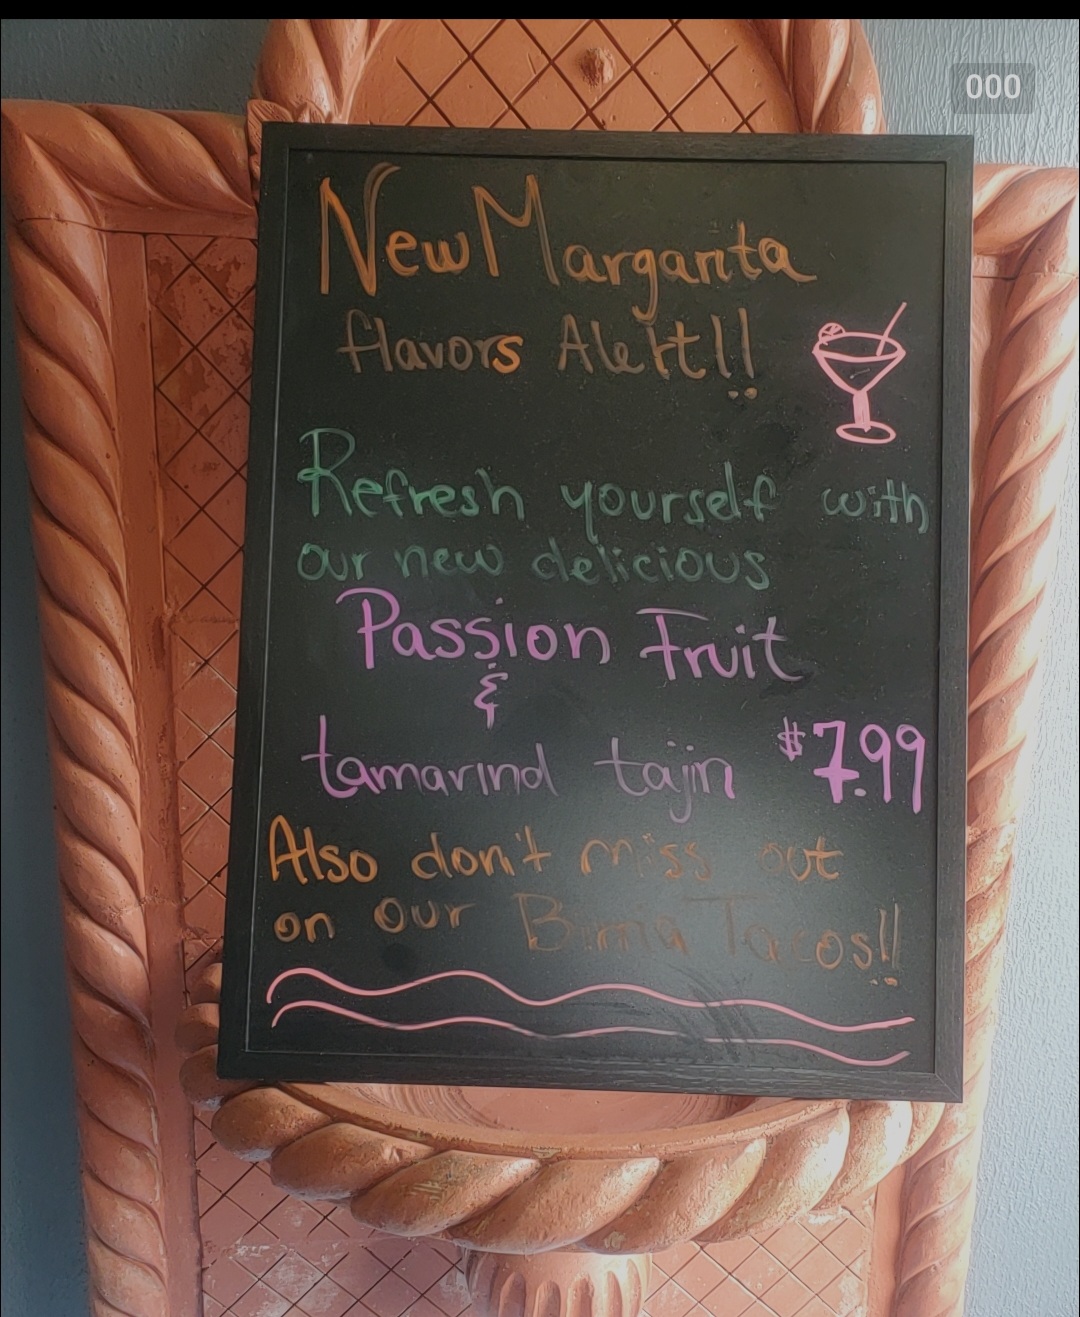 000
New Margarita
flavors Alert!!
Refresh yourself with
our new delicious
Passion Fruit
&
tamarind tajin $7.99
Also don't miss out
on our Birria Tacos!!